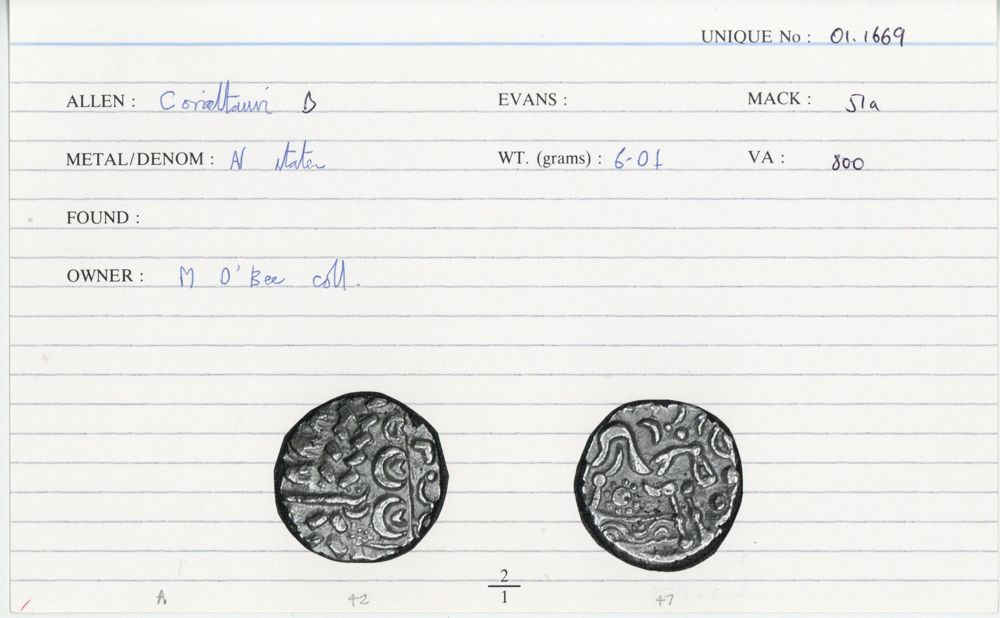 UNIQUE No : 01.1669
ALLEN : Corieltauvi B EVANS : MACK : 51a
METAL/DENOM : AV stater WT. (grams) : 6-01 VA : 800
FOUND :
OWNER : M O'Bee coll.
2
1
A 42 47